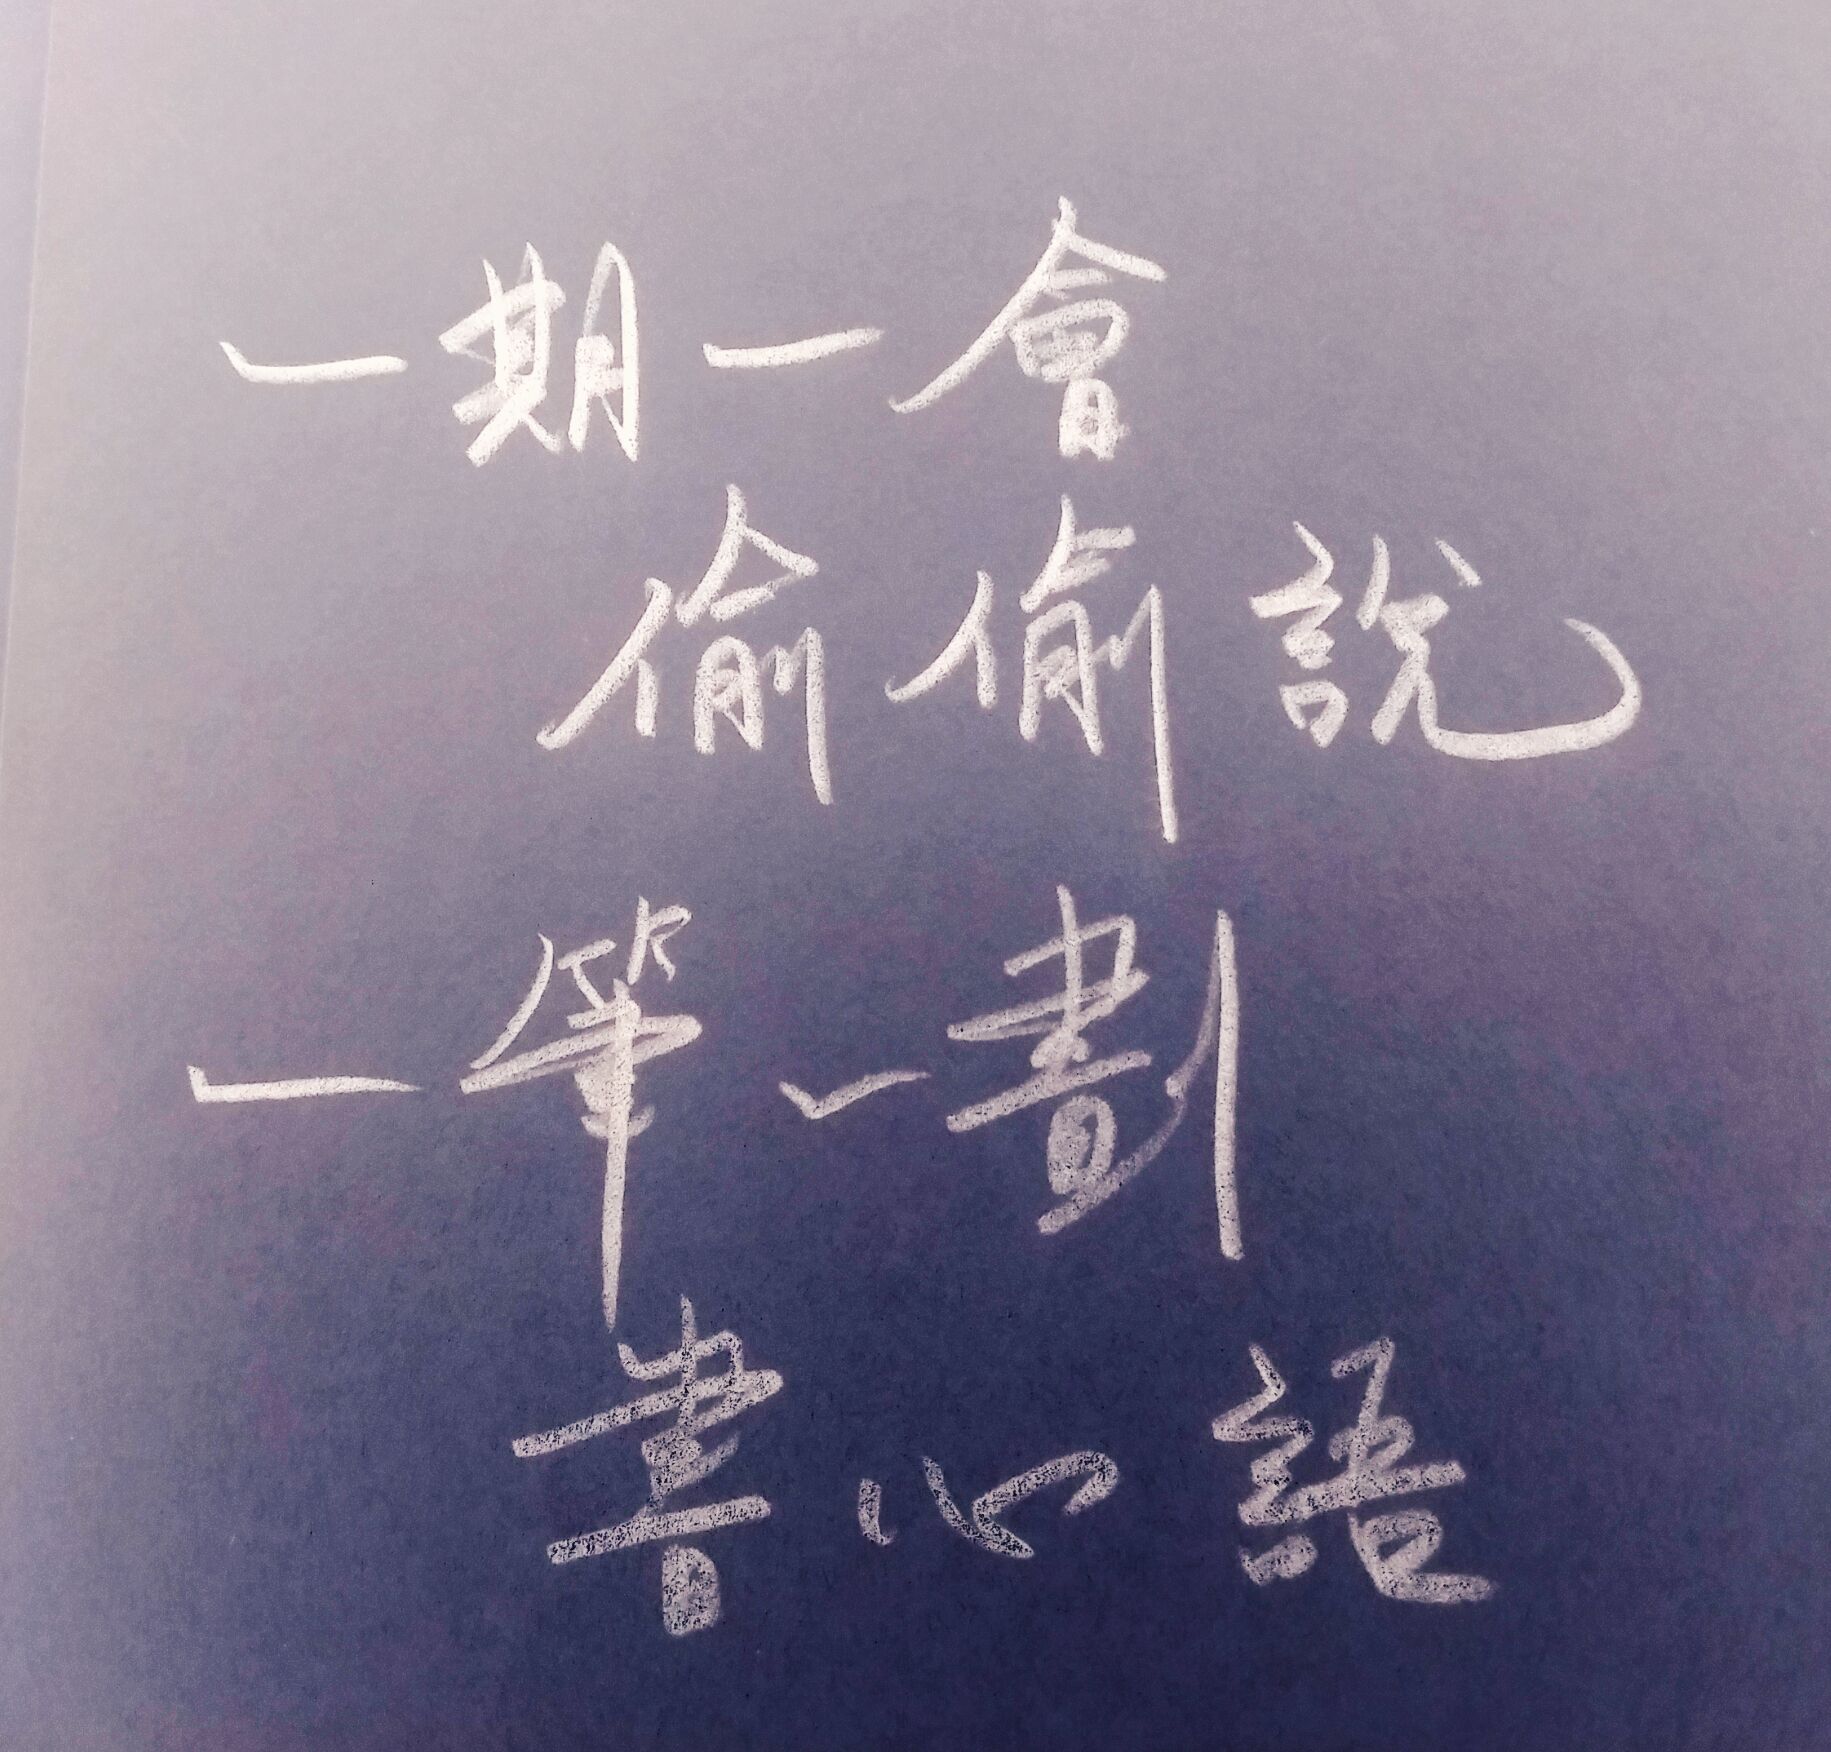 一期一會
偷偷說
一筆一劃
書心語